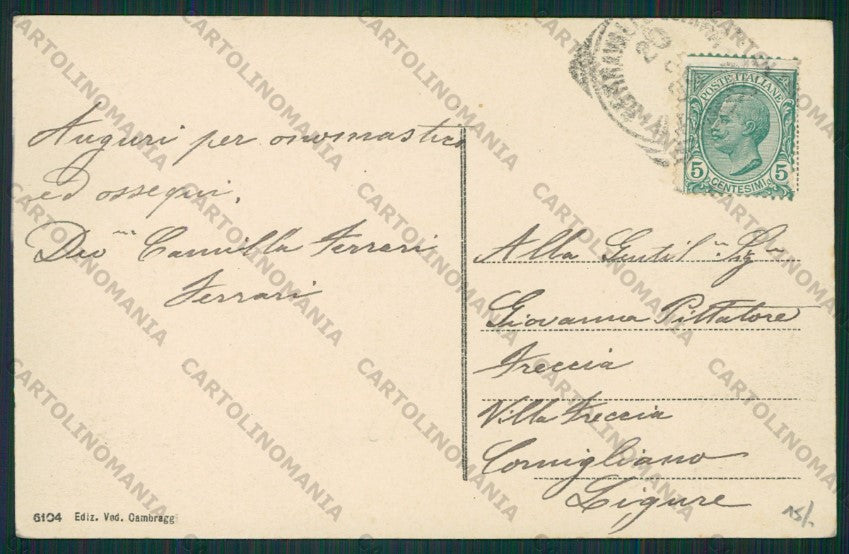 Auguri per onomastico
ed ossequi.
Dev.me Camilla Ferrari
Ferrari
POSTE ITALIANE
5 CENTESIMI 5
Alla Gentil.ma Sig.ra
Giovanna Pittatore
Freccia
Villa Freccia
Cornigliano
Ligure
15/-
6104 Ediz. Ved. Cambraggi
CARTOLINOMANIA